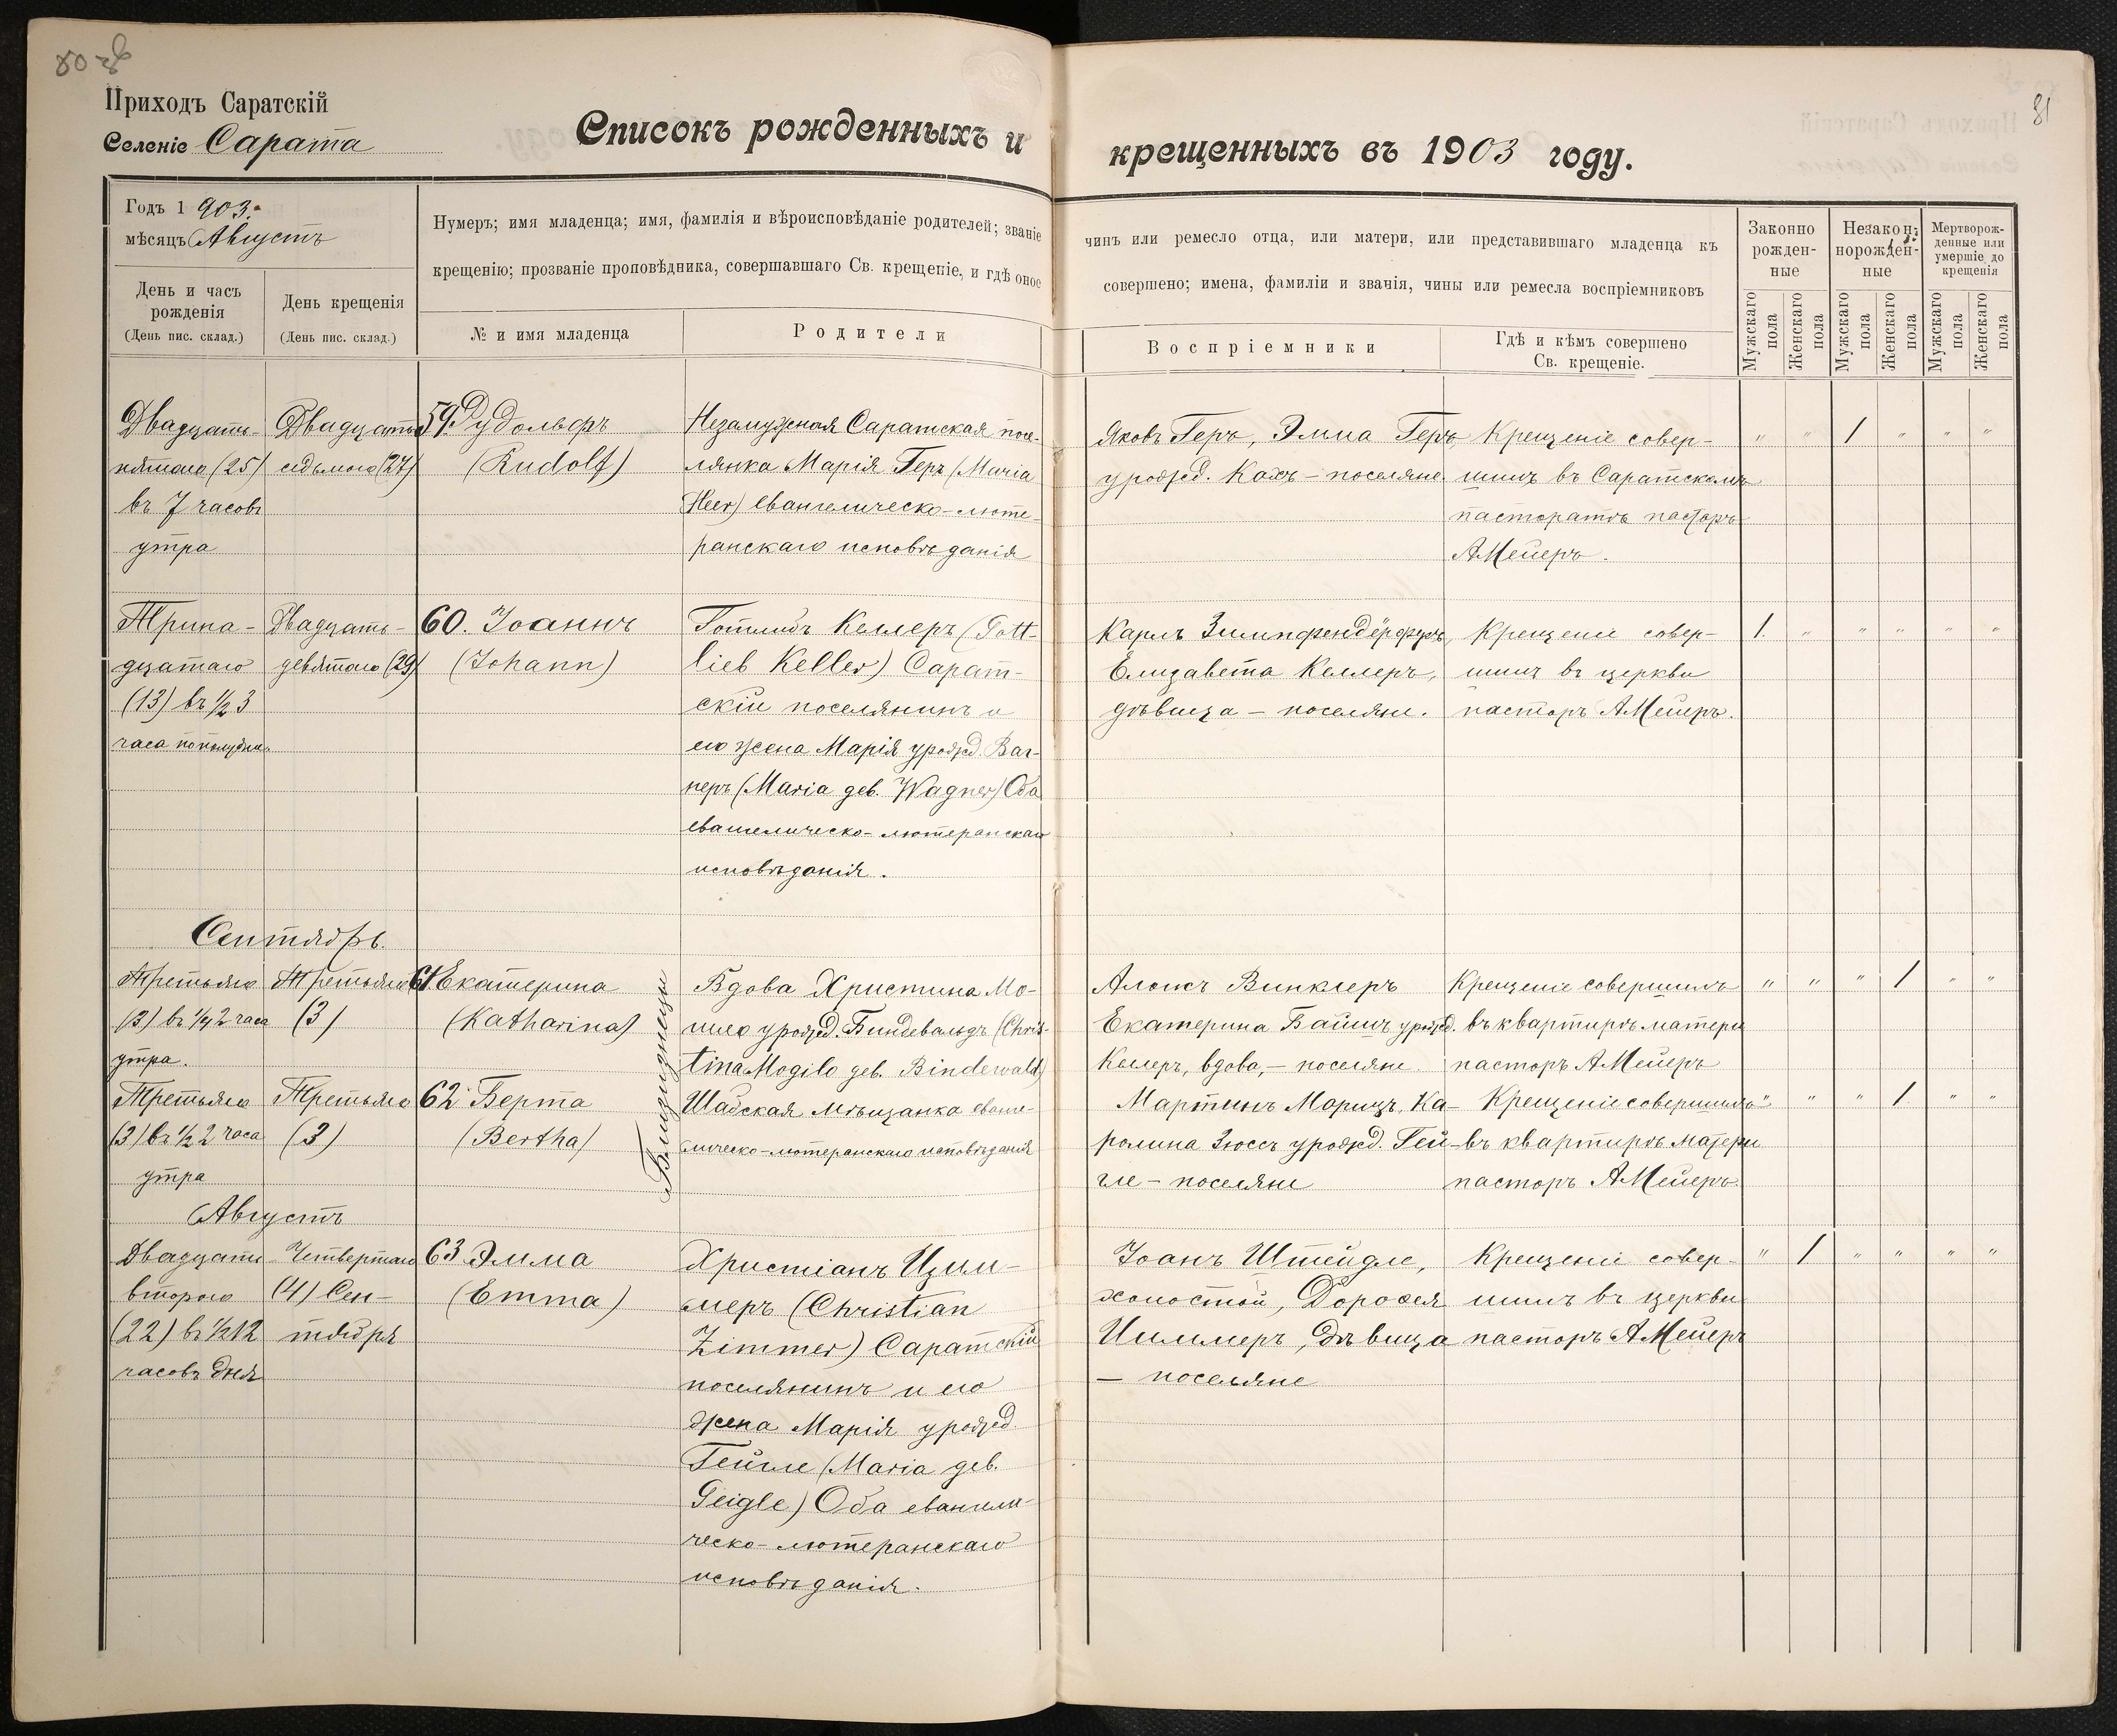 80 об
Приходъ Саратскій
Селеніе Сарата
Списокъ рожденныхъ и
Годъ 1903.
мѣсяцъ Августъ
Нумеръ; имя младенца; имя, фамилія и вѣроисповѣданіе родителей; званіе
крещенію; прозваніе проповѣдника, совершавшаго Св. крещеніе, и гдѣ оное
День и часъ
рожденія
(День пис. склад.)
День крещенія
(День пис. склад.)
№ и имя младенца
Родители
Двадцать-
пятаго (25)
въ 7 часовъ
утра
Двадцать
седьмого (27)
59. Рудольфъ
(Rudolf)
Незамужная Саратская посе-
лянка Марія Геръ (Maria
Heer) евангелическо-люте-
ранскаго исповѣданія
Трина-
дцатаго
(13) въ 1/2 3
часа пополудни.
Двадцать-
девятаго (29)
60. Іоаннъ
(Johann)
Готлибъ Келлеръ (Gott-
lieb Keller) Сарат-
скій поселянинъ и
его жена Марія урожд. Ваг-
неръ (Maria geb. Wagner) Оба
евангелическо-лютеранскаго
исповѣданія.
Сентябрь.
Третьяго
(3) въ 1/4 2 часа
утра.
Третьяго
(3)
61 Екатерина
(Katharina)
Близнецы
Вдова Христина Мо-
гило урожд. Биндевальдъ (Chris-
tina Mogilo geb. Binderwald)
Третьяго
(3) въ 1/2 2 часа
утра
Третьяго
(3)
62 Берта
(Bertha)
Шабская мѣщанка еванге-
лическо-лютеранскаго исповѣданія
Августъ
Двадцать
второго
(22) въ 1/2 12
часовъ дня
Четвертаго
(4) Сен-
тября
63 Эмма
(Emma)
Христіанъ Цим-
меръ (Christian
Zimmer) Саратскій
поселянинъ и его
жена Марія урожд.
Гейгле (Maria geb.
Geigle) Оба евангели-
ческо-лютеранскаго
исповѣданія.
81
крещенныхъ въ 1903 году.
чинъ или ремесло отца, или матери, или представившаго младенца къ
совершено; имена, фамиліи и званія, чины или ремесла воспріемниковъ
Воспріемники
Гдѣ и кѣмъ совершено
Св. крещеніе.
Законно
рожден-
ные
Незакон-
норожден-
ные
Мертворож-
денные или
умершіе до
крещенія
Мужскаго
пола
Женскаго
пола
Мужскаго
пола
Женскаго
пола
Мужскаго
пола
Женскаго
пола
Яковъ Геръ, Эмма Геръ,
урожд. Кахъ - поселяне.
Крещеніе совер-
шилъ въ Саратскомъ
пасторатѣ пасторъ
А Мейеръ.
" " 1 " " "
Карлъ Зимпфендёрферъ,
Елизавета Келлеръ,
дѣвица - поселяне.
Крещеніе совер-
шилъ въ церкви
пасторъ А Мейеръ.
1. " " " " "
Алоисъ Винклеръ
Екатерина Байшъ урожд.
Келеръ, вдова, - поселяне
Крещеніе совершилъ
въ квартирѣ матери
пасторъ А Мейеръ
" " " 1 " "
Мартинъ Морицъ, Ка-
ролина Зюссъ урожд. Гей-
гле - поселяне
Крещеніе совершилъ
въ квартирѣ матери
пасторъ А Мейеръ
" " " 1 " "
Іоанъ Штейдле,
холостой, Доротея
Циммеръ, дѣвица
- поселяне
Крещеніе совер-
шилъ въ церкви
пасторъ А Мейеръ
" 1 " " " "